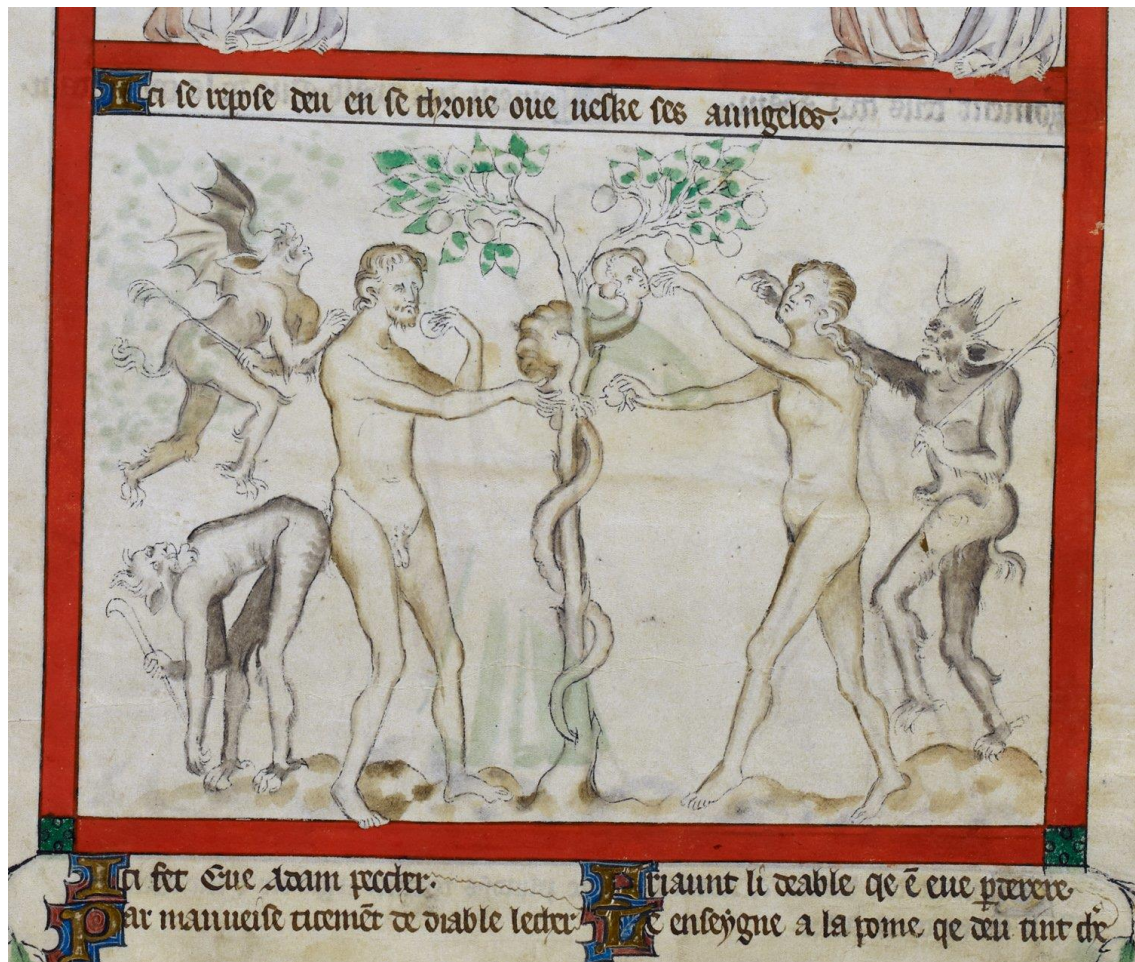 Ici se repose deu en se throne oue ueske ses aungeles.
Ici fet Eue Adam peccher.
Par mauueise ticemēt de diable lecher.
Friaunt li deable qe ē eue
Le enseygne a la pome qe deu tint